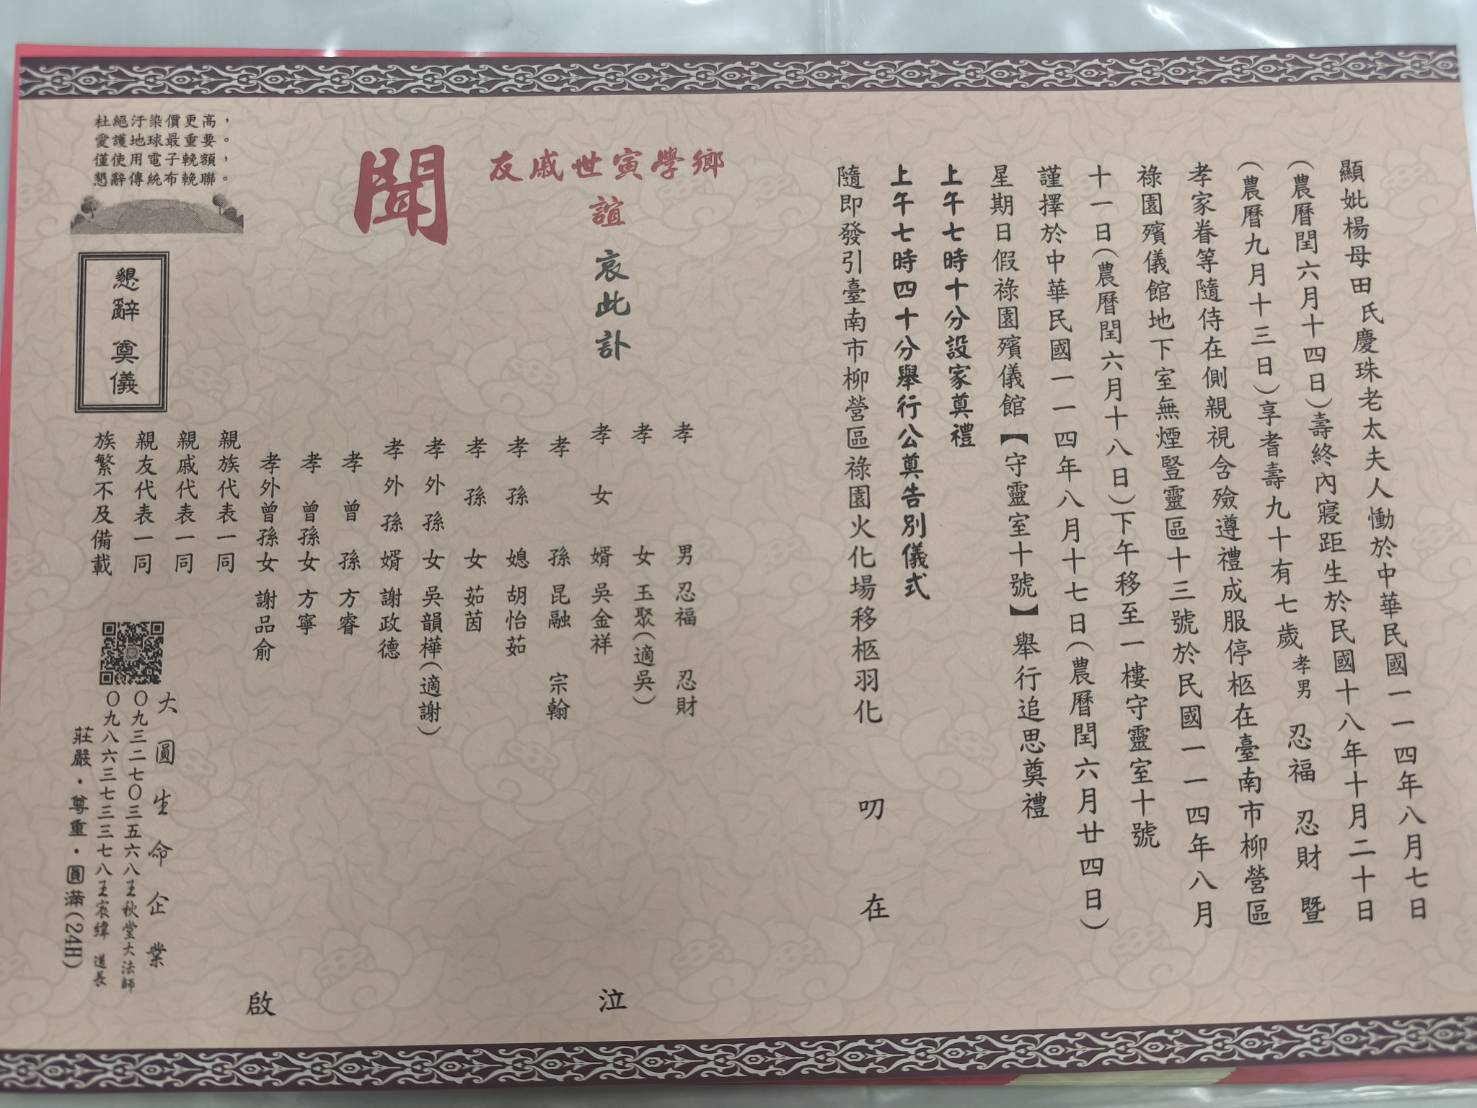 顯妣楊母田氏慶珠老太夫人慟於中華民國一一四年八月七日
(農曆閏六月十四日)壽終內寢距生於民國十八年十月二十日
(農曆九月十三日)享耆壽九十有七歲 孝男 忍福 忍財 暨
孝家眷等隨侍在側親視含殮遵禮成服停柩在臺南市柳營區
祿園殯儀館地下室無煙豎靈區十三號於民國一一四年八月
十一日(農曆閏六月十八日)下午移至一樓守靈室十號
謹擇於中華民國一一四年八月十七日(農曆閏六月廿四日)
星期日假祿園殯儀館【守靈室十號】舉行追思奠禮
上午七時十分設家奠禮
上午七時四十分舉行公奠告別儀式
隨即發引臺南市柳營區祿園火化場移柩羽化 叨 在
鄉學寅世戚友
誼 哀此訃
聞
孝 男 忍福 忍財
孝 女 玉聚(適吳)
孝 女 婿 吳金祥 泣
孝 孫 昆融 宗翰
孝 孫 媳 胡怡茹
孝 孫 女 茹茵
孝 外 孫 女 吳韻樺(適謝)
孝 外 孫 婿 謝政德
孝 曾 孫 方睿
孝 曾孫女 方寧
孝外曾孫女 謝品俞 啟
親族代表一同
親戚代表一同
親友代表一同
族繁不及備載
杜絕汙染價更高，
愛護地球最重要。
僅使用電子輓額，
懇辭傳統布輓聯。
懇辭 奠儀
大圓生命企業
〇九三二七〇三五六八王秋堂大法師
〇九八六三七三三七八王宸緯 道長
莊嚴・尊重・圓滿(24H)